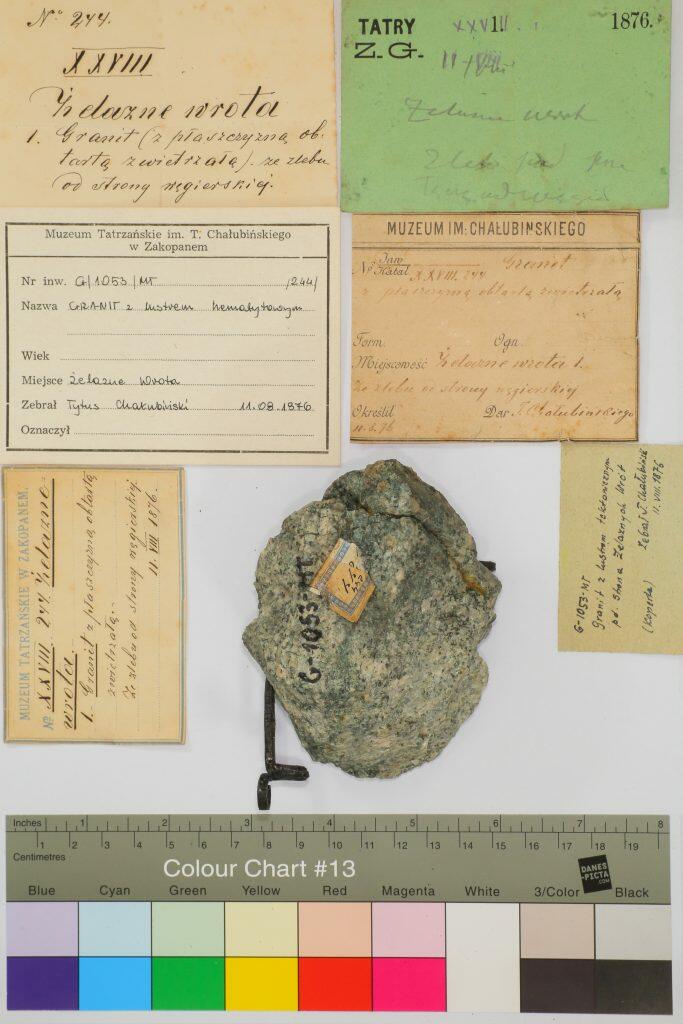 No 244.
XXVIII
Żelazne wrota
1. Granit (z płaszczyzną ob-
tartą zwietrzałą). ze żlebu
od strony węgierskiej.
TATRY XXVIII. 1876.
Z. G.
Żelazne wrota
Żleb pod
Muzeum Tatrzańskie im. T. Chałubińskiego
w Zakopanem
Nr inw. G/1053/MT /244/
Nazwa GRANIT z lustrem hematytowym
Wiek
Miejsce Żelazne Wrota
Zebrał Tytus Chałubiński 11.08.1876
Oznaczył
MUZEUM IM: CHAŁUBIŃSKIEGO
No Inw. Katal. XXVIII. 244 Granit
z płaszczyzną obtartą zwietrzałą
Form. Ogn.
Miejscowość Żelazne wrota 1.
Ze żlebu od strony węgierskiej
Określił Dar T. Chałubińskiego
11.8.76
MUZEUM TATRZAŃSKIE W ZAKOPANEM.
No XXVIII. 244. Żelazne
wrota.
1. Granit z płaszczyzną obtartą
zwietrzałą.
Ze żlebu od strony węgierskiej.
11. VIII 1876.
G-1053-MT
244
G-1053-MT
Granit z lustrem tektonicznym
pd. strona Żelaznych Wrót
Zebrał T. Chałubiński
(koperta) 11. VIII. 1876
Inches 1 2 3 4 5 6 7 8
Centimetres 1 2 3 4 5 6 7 8 9 10 11 12 13 14 15 16 17 18 19
Colour Chart #13
DANES
-PICTA
.COM
Blue Cyan Green Yellow Red Magenta White 3/Color Black